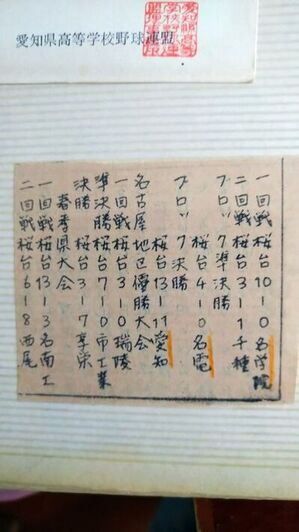 愛知県高等学校野球連盟
一回戦 桜台 10-0 名学院
二回戦 桜台 3-1 千種
ブロック準決勝
桜台 4-0 名電
ブロック決勝
桜台 13-11 愛知
名古屋地区優勝大会
一回戦 桜台 3-0 瑞陵
準決勝 桜台 7-0 市工業
決勝 桜台 3-7 享栄
春季県大会
一回戦 桜台 13-3 名南工
二回戦 桜台 6-8 西尾